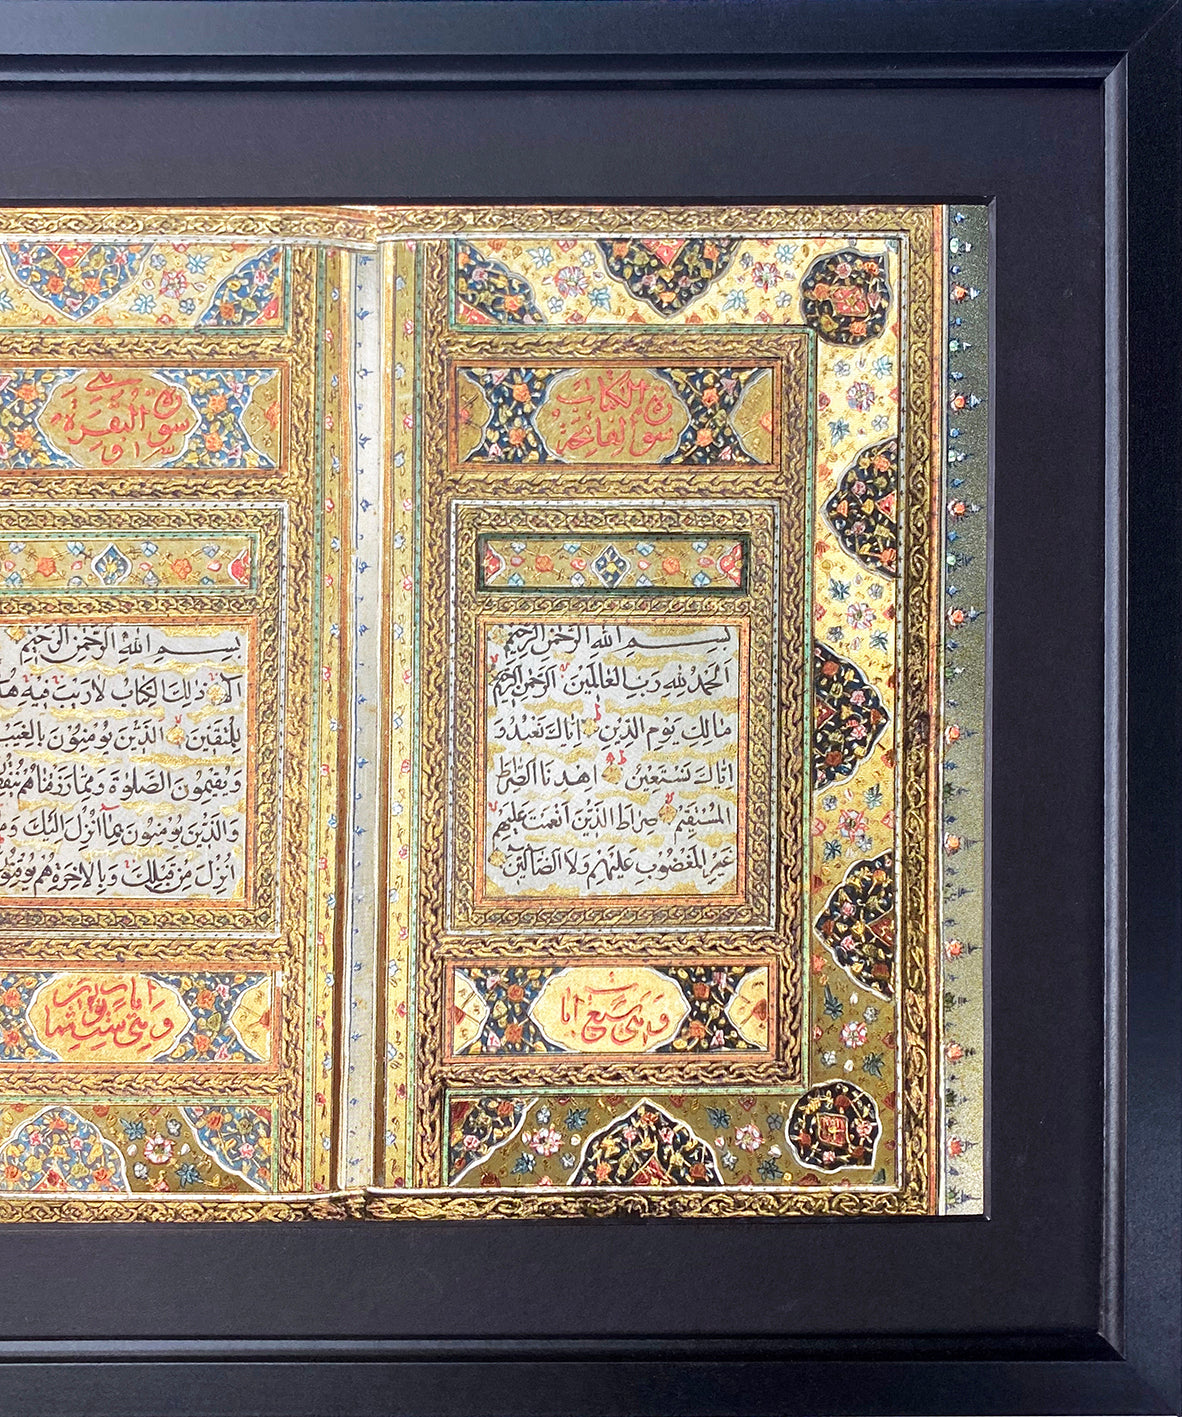 سورة فاتحة
الكتاب
بِسْمِ اللهِ الرَّحْمٰنِ الرَّحِيمِ
اَلْحَمْدُ لِلّٰهِ رَبِّ الْعَالَمِينَ الرَّحْمٰنِ الرَّحِيمِ
مَالِكِ يَوْمِ الدِّينِ اِيَّاكَ نَعْبُدُ وَ
اِيَّاكَ نَسْتَعِينُ اِهْدِنَا الصِّرَاطَ
الْمُسْتَقِيمَ صِرَاطَ الَّذِينَ اَنْعَمْتَ عَلَيْهِمْ
غَيْرِ الْمَغْضُوبِ عَلَيْهِمْ وَلَا الضَّالِّينَ
وَهِيَ سَبْعُ
سورة البقرة
بِسْمِ اللهِ الرَّحْمٰنِ الرَّحِيمِ
الم ذٰلِكَ الْكِتَابُ لَا رَيْبَ فِيهِ
لِلْمُتَّقِينَ الَّذِينَ يُؤْمِنُونَ بِالْغَيْبِ
وَيُقِيمُونَ الصَّلٰوةَ وَمِمَّا رَزَقْنَاهُمْ
وَالَّذِينَ يُؤْمِنُونَ بِمَا اُنْزِلَ اِلَيْكَ
اُنْزِلَ مِنْ قَبْلِكَ وَبِالْاٰخِرَةِ هُمْ